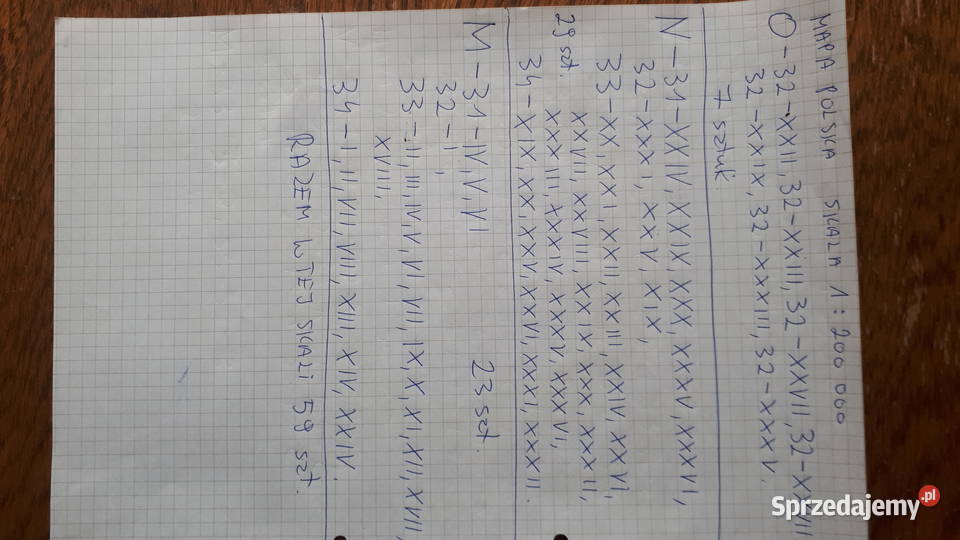 MAPA POLSKA SKALA 1:200 000
O-32-XXII, 32-XXIII, 32-XXVII,
32-XXIX, 32-XXXIII, 32-XXXV.
7 sztuk
N-31-XXIV, XXIX, XXX, XXXV, XXXVI,
32-XXXI, XXV, XIX,
33-XX, XXI, XXII, XXIII, XXIV, XXVI,
XXVII, XXVIII, XXIX, XXX, XXXII,
29 szt. XXXIII XXXIV, XXXV, XXXVI,
34-XIX, XX, XXV, XXVI, XXXI, XXXII.
M-31-IV, V, VI 23 szt.
32-I,
33-II, III, IV, V, VI, VII, IX, X, XI, XII, XVII,
XVIII,
34-I, II, VII, VIII, XIII, XIV, XXIV.
RAZEM W TEJ SKALI 59 szt.
Sprzedajemy.pl